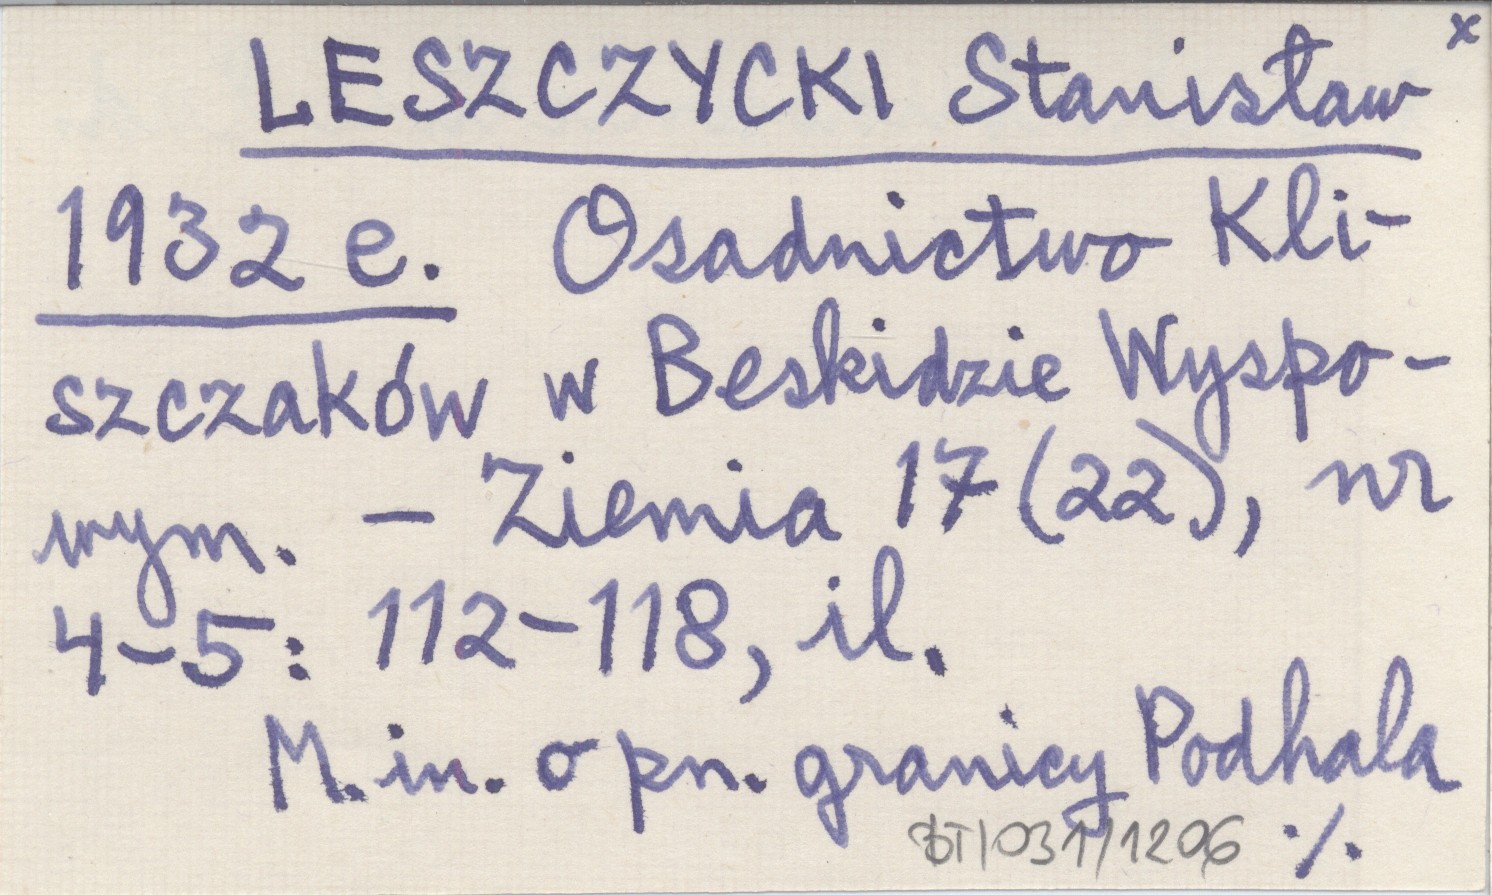 LESZCZYCKI Stanisław x
1932 e. Osadnictwo Kli-
szczaków w Beskidzie Wyspo-
wym. – Ziemia 17 (22), nr
4–5: 112–118, il.
M. in. o pn. granicy Podhala
BT/031/1206 ./.